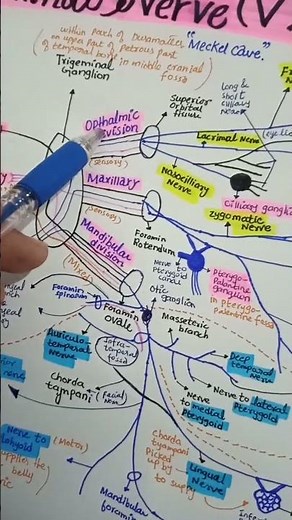 Nerve (V
within Patch of Duramater
on upper Part of Petrous part
of temporal bone in middle cranial
fossa
"Meckel cave."
Trigeminal
Ganglion
Superior
orbital
fissure
Long &
short
ciliary
nerve
Ophthalmic
Division
(sensory)
Lacrimal Nerve
Nasociliary
Nerve
Cilliary ganglio
Zygomatic
Nerve
Maxillary
(sensory)
Foramin
Rotendum
Nerve to
Pterygoid
canal
Pterygo-
Palantine
ganglion
in pterygo-
palentine fossa
Mandibular
division
(Mixed)
Otic
ganglion
Foramin
spinosum
Foramin
ovale
Masseteric
branch
Auriculo-
temporal Nerve
Infra-
temporal
fossa
Deep
temporal
Nerve
Chorda
tympani
Facial
Nerve
Nerve
to
medial
Pterygoid
Nerve to lateral
Pterygoid
Nerve to
(Motor)
the
belly
Chorda
tyampani
Picked
up by
to supply
Lingual
Nerve
Mandibular
foramin